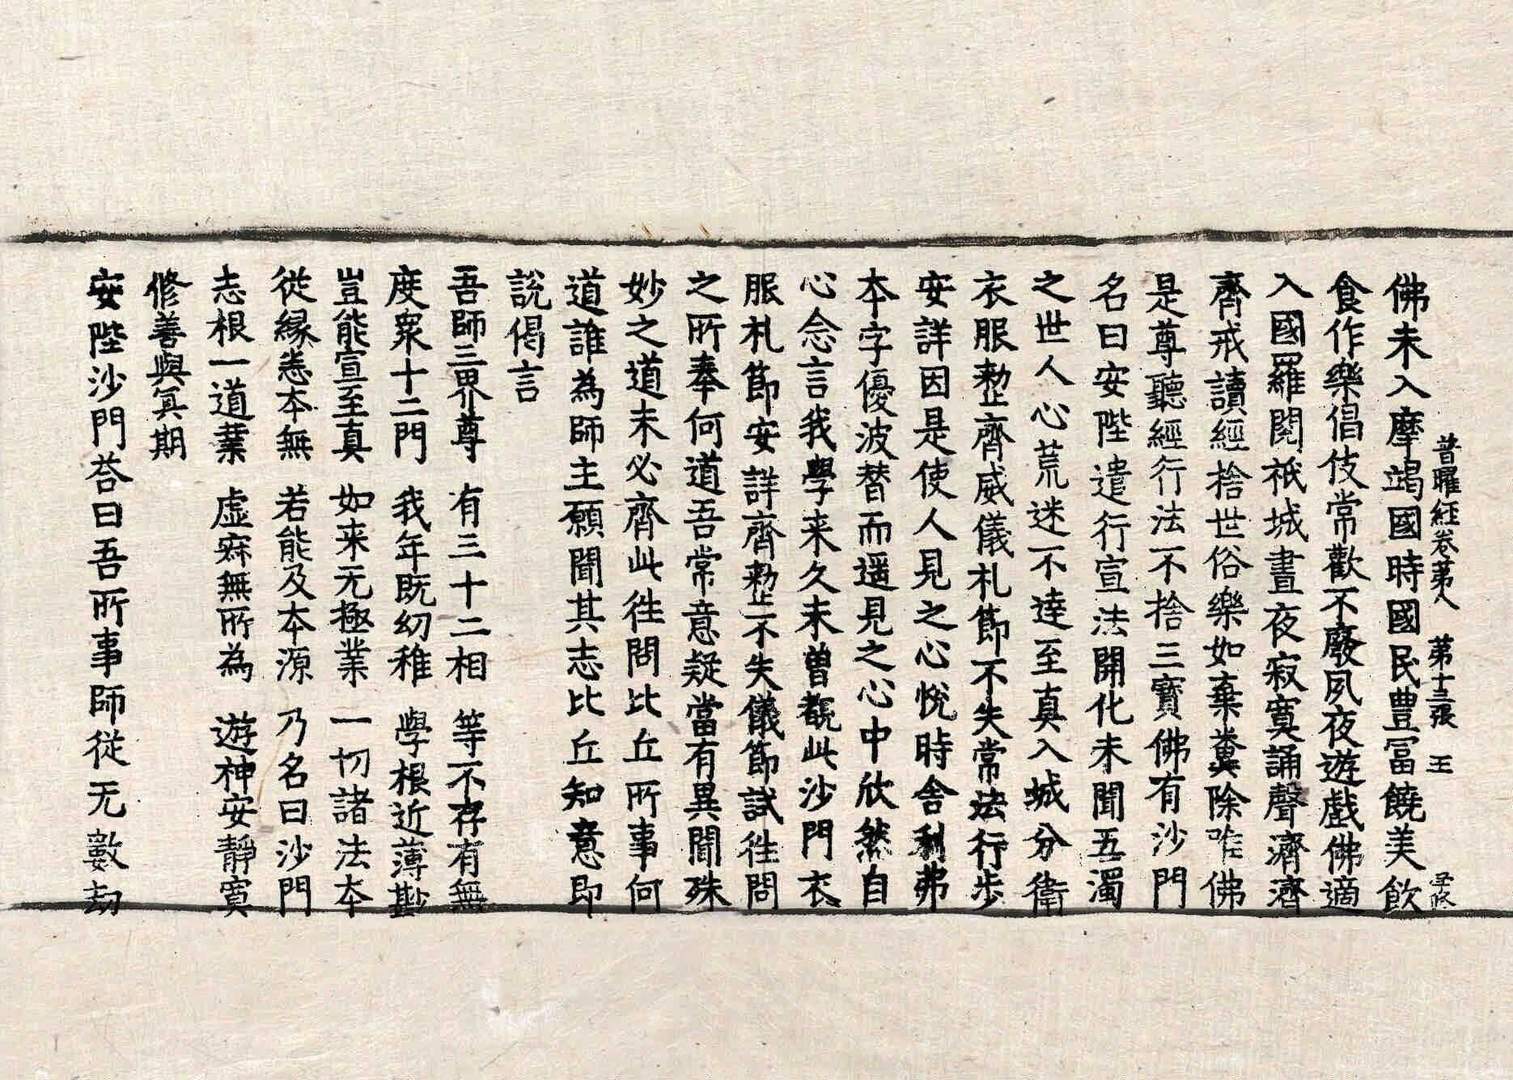 普曜経卷苐八　第十三張　王
佛未入摩竭國時國民豊冨饒美飲
食作樂倡伎常歡不廢夙夜遊戲佛適
入國羅閱祇城晝夜寂寞誦聲濟濟
齊戒讀經捨世俗樂如棄糞除唯佛
是尊聽經行法不捨三寶佛有沙門
名曰安陛遣行宣法開化未聞五濁
之世人心荒迷不達至真入城分衛
衣服整齊威儀礼節不失常法行步
安詳因是使人見之心悅時舍利弗
本字優波替而遥見之心中欣然自
心念言我學来久未曽覩此沙門衣
服礼節安詳齊整不失儀節試往問
之所奉何道吾常意疑當有異聞殊
妙之道未必齊此往問比丘所事何
道誰為師主願聞其志比丘知意即
說偈言
吾師三界尊　有三十二相　等不存有無
度衆十二門　我年既幼稚　學根近薄尠
豈能宣至真　如来无極業　一切諸法本
從縁悉本無　若能及本源　乃名曰沙門
志根一道業　虚寂無所為　遊神安靜寞
修善與冥期
安陛沙門荅曰吾所事師從无數劫